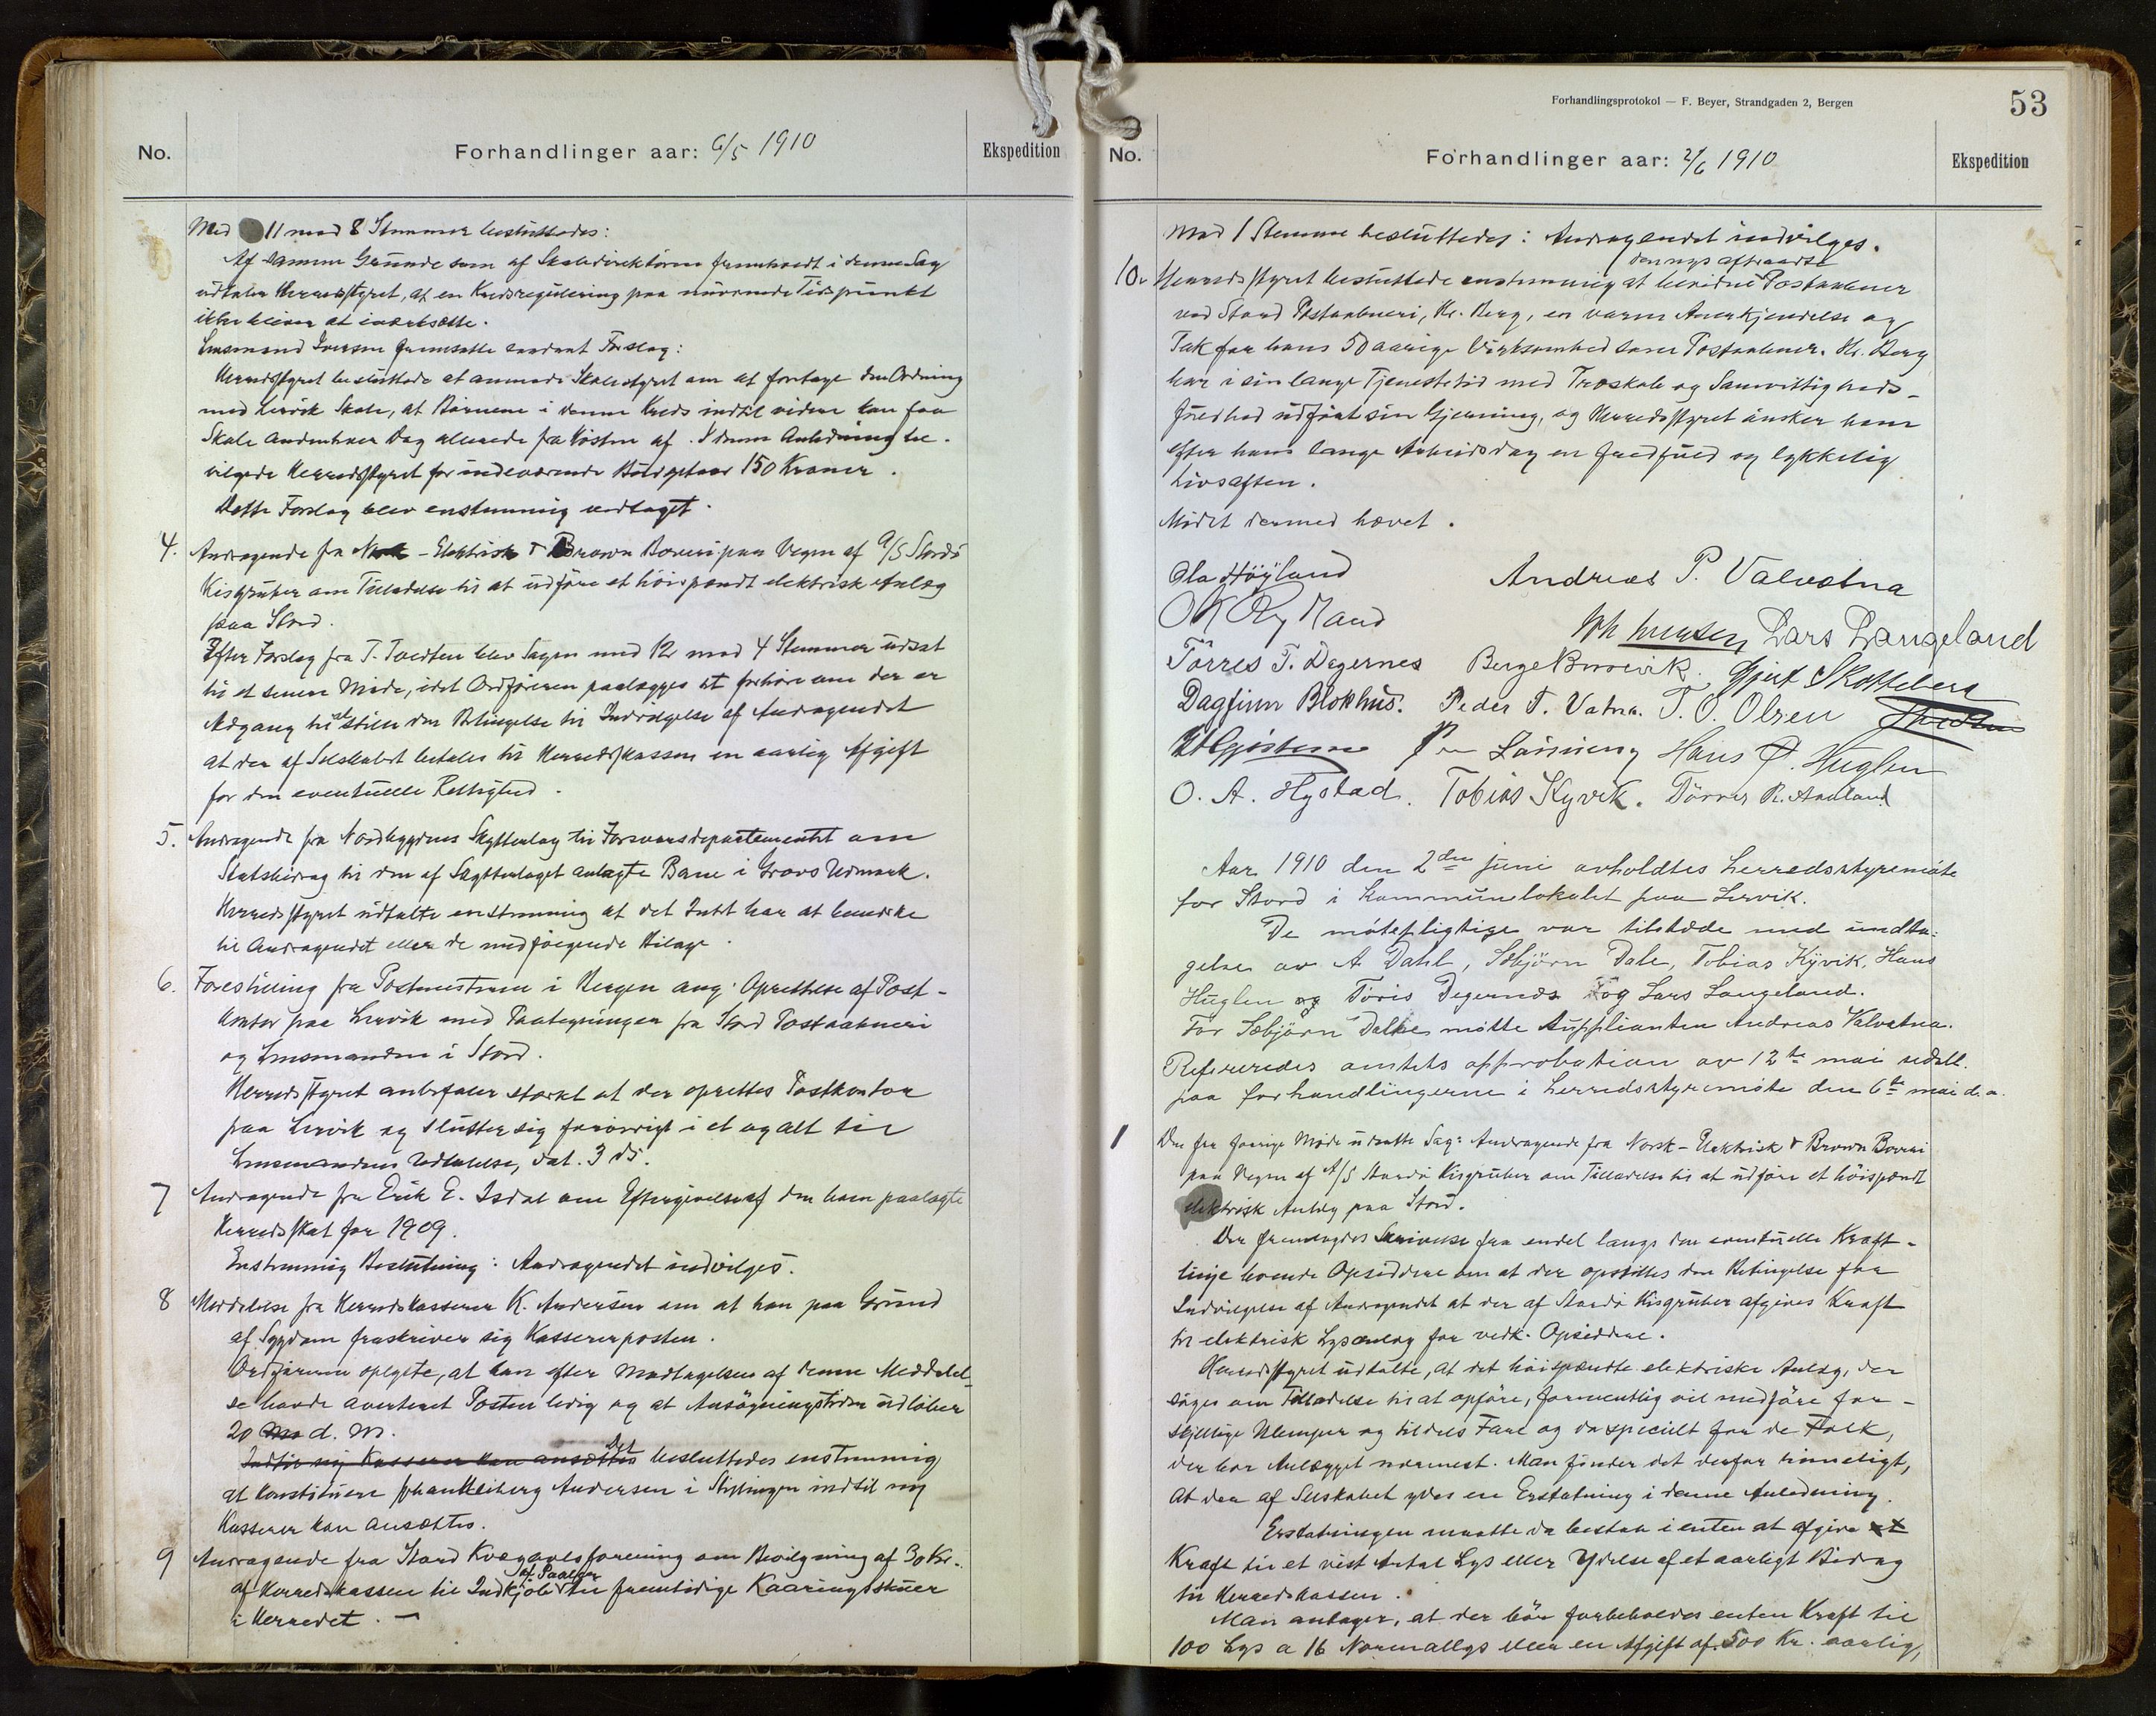 No.
Forhandlinger aar: 6/5 1910
Ekspedition
Med 11 mod 8 Stemmer besluttedes:
Af samme Grunde som af Skoledirektøren fremholdt i denne Sag
udtaler Herredsstyret, at en Kredsregulering paa nuværende Tidspunkt
ikke bliver at iverksætte.
Lensmand Iversen fremsatte saadant Forslag:
Herredsstyret besluttede at anmode Skolestyret om at foretage den Ordning
med Lervik Skole, at Børnene i denne Kreds indtil videre kan faa
Skole andenhver Dag allerede fra Høsten af. I denne Anledning be-
vilgede Herredsstyret for indeværende Budgetaar 150 Kroner.
Dette Forslag blev enstemmig vedtaget.
4. Andragende fra Norsk-Elektrisk & Brown Boveri paa Vegne af A/S Stordø
Kisgruber om Tilladelse til at udføre et høispændt elektrisk Anlæg
paa Stord.
Efter Forslag fra T. Tvedten blev Sagen med 12 mod 4 Stemmer udsat
til et senere Møde, idet Ordføreren paalægges at forhøre om der er
Adgang til at stille den Betingelse til Indvilgelse af Andragendet
at der af Selskabet betales til Herredskassen en aarlig Afgift
for den eventuelle Rettighed.
5. Andragende fra Nordbygdens Skytterlag til Forsvarsdepartementet om
Statsbidrag til den af Skytterlaget anlagte Bane i Grovs Udmark.
Herredsstyret udtalte enstemmig at det Intet har at bemerke
til Andragendet eller de medfølgende Bilage.
6. Forestilling fra Postmesteren i Bergen ang. Oprettelse af Post-
kontor paa Lervik med Paategninger fra Stord Postaabneri
og Lensmanden i Stord.
Herredsstyret anbefaler sterkt at der oprettes Postkontor
paa Lervik og slutter sig forøvrigt i et og alt til
Lensmandens Udtalelse, dat. 3 ds.
7 Andragende fra Erik E. Isdal om Eftergivelse af den ham paalagte
Herredsskat for 1909.
Enstemmig Beslutning: Andragendet indvilges.
8 Meddelelse fra Herredskasserer K. Andersen om at han paa Grund
af Sygdom fraskriver sig Kassererposten.
Ordføreren oplyste, at han efter Modtagelsen af denne Meddelel-
se havde averteret Posten ledig og at Ansøgningstiden udløber
20 d. M.
Indtil ny Kasserer kan ansættes Det besluttedes enstemmig
at konstituere Johan Heiberg Andersen i Stillingen indtil ny
Kasserer kan ansættes.
9 Andragende fra Stord Kvægavlsforening om Bevilgning af 30 Kr.
af Herredskassen til Indkjøb af Paaler til fremtidige Kaaringsskuer
i Herredet. —
Forhandlingsprotokol — F. Beyer, Strandgaden 2, Bergen
53
No.
Forhandlinger aar: 2/6 1910
Ekspedition
Mod 1 Stemme besluttedes: Andragendet indvilges.
den nys aftraadte
10. Herredsstyret besluttede enstemmig at bevidne Postaabner
ved Stord Postaabneri, Hr. Berg, en varm Anerkjendelse og
Tak for hans 50 aarige Virksomhed som Postaabner. Hr. Berg
har i sin lange Tjenestetid med Troskab og Samvittigheds-
fuldhed udført sin Gjerning, og Herredsstyret ønsker ham
efter hans lange Arbeidsdag en fredfuld og lykkelig
Livsaften.
Mødet dermed hævet.
Ola Høyland Andreas P. Valvatna
Joh Iversen Lars Langeland
Tørres T. Degernes Berge Gjert Skotteberg
Dagfinn Blokhus. Peder T. Vatna. T. O. Olsen
Hans Ø. Huglen
O. A. Hystad. Tobias Kyvik. Tørres R. Aadland
Aar 1910 den 2den juni avholdtes herredsstyremøte
for Stord i kommunelokalet paa Lervik.
De møtepligtige var tilstede med undta-
gelse av A. Dahl, Sæbjørn Dale, Tobias Kyvik, Hans
Huglen og Tøris Degernes og Lars Langeland.
For Sæbjørn Dale møtte suppleanten Andreas Valvatna.
Refereredes amtets approbation av 12te mai sidstl.
paa forhandlingerne i herredsstyremøte den 6te mai d.a.
1 Den fra forrige Møde udsatte Sag: Andragende fra Norsk-Elektrisk & Brown Boveri
paa Vegne af A/S Stordø Kisgruber om Tilladelse til at udføre et høispændt
elektrisk Anlæg paa Stord.
Der fremlagdes Skrivelse fra endel langs den eventuelle Kraft-
linje boende Opsiddere om at der opstilles den Betingelse for
Indvilgelse af Andragendet at der af Stordø Kisgruber afgives Kraft
til elektrisk Lysanlæg for vedk. Opsiddere.
Herredsstyret udtalte, at det høispændte elektriske Anlæg, der
søges om Tilladelse til at opføre, formentlig vil medføre for-
skjellige Ulemper og tildels Fare og da specielt for de Folk,
der bor Anlægget nærmest. Man finder det derfor rimeligt,
at der af Selskabet ydes en Erstatning i denne Anledning.
Erstatningen maatte da bestaa i enten at afgive
Kraft til et vist Antal Lys eller Ydelse af et aarligt Bidrag
til Herredskassen.
Man antager, at der bør forbeholdes enten Kraft til
100 Lys a 16 Normallys eller en Afgift af 500 Kr. aarlig,